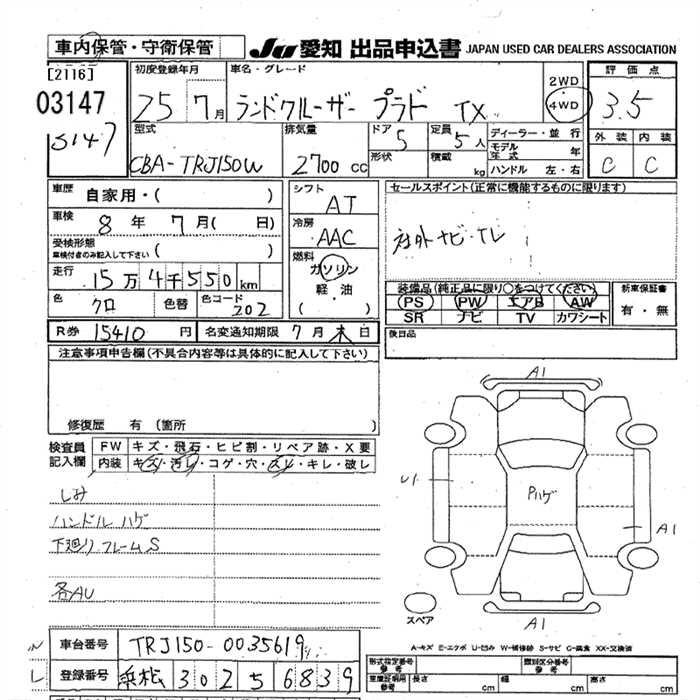 車内保管・守衛保管
JU 愛知 出品申込書 JAPAN USED CAR DEALERS ASSOCIATION
[2116]
03147
5147
初度登録年月
25 7月
車名・グレード
ランドクルーザー プラド TX
2WD
4WD
評価点
3.5
外装 内装
C C
型式
CBA-TRJ150W
排気量
2700 cc
ドア 5
形状
定員 5人
積載 kg
ディーラー・並行
モデル年式 年
ハンドル 左・右
車歴 自家用・( )
車検 8年 7月( 日)
受検形態 ( )
車検付者のみ記入して下さい
走行 15万4千550km
色 クロ 色替 色コード 202
R券 15410円 名変通知期限 7月末日
シフト
AT
冷房
AAC
燃料
ガソリン
軽・油
( )
セールスポイント(正常に機能するものに限ります)
社外ナビ・TV
装備品(純正品に限り〇をつけてください)
PS PW エアB AW
SR ナビ TV カワシート
新車保証書
有・無
後日品
注意事項申告欄(不具合内容等は具体的に記入して下さい)
修復歴 有(箇所 )
検査員記入欄
FW キズ・飛石・ヒビ割・リペア跡・X要
内装 キズ・汚レ・コゲ・穴・スレ・キレ・破レ
しみ
ハンドルハゲ
下廻りフレームS
各AU
A1
U1
Pハゲ
A1
A1
スペア
A-キズ E-エクボ U-凹み W-補修跡 S-サビ C-腐食 XX-交換済
車台番号 TRJ150-0035619
登録番号 30256839
形式指定番号 参考
類別区分番号 参考
車庫証明用 参考 長さ cm 幅 cm 高さ cm